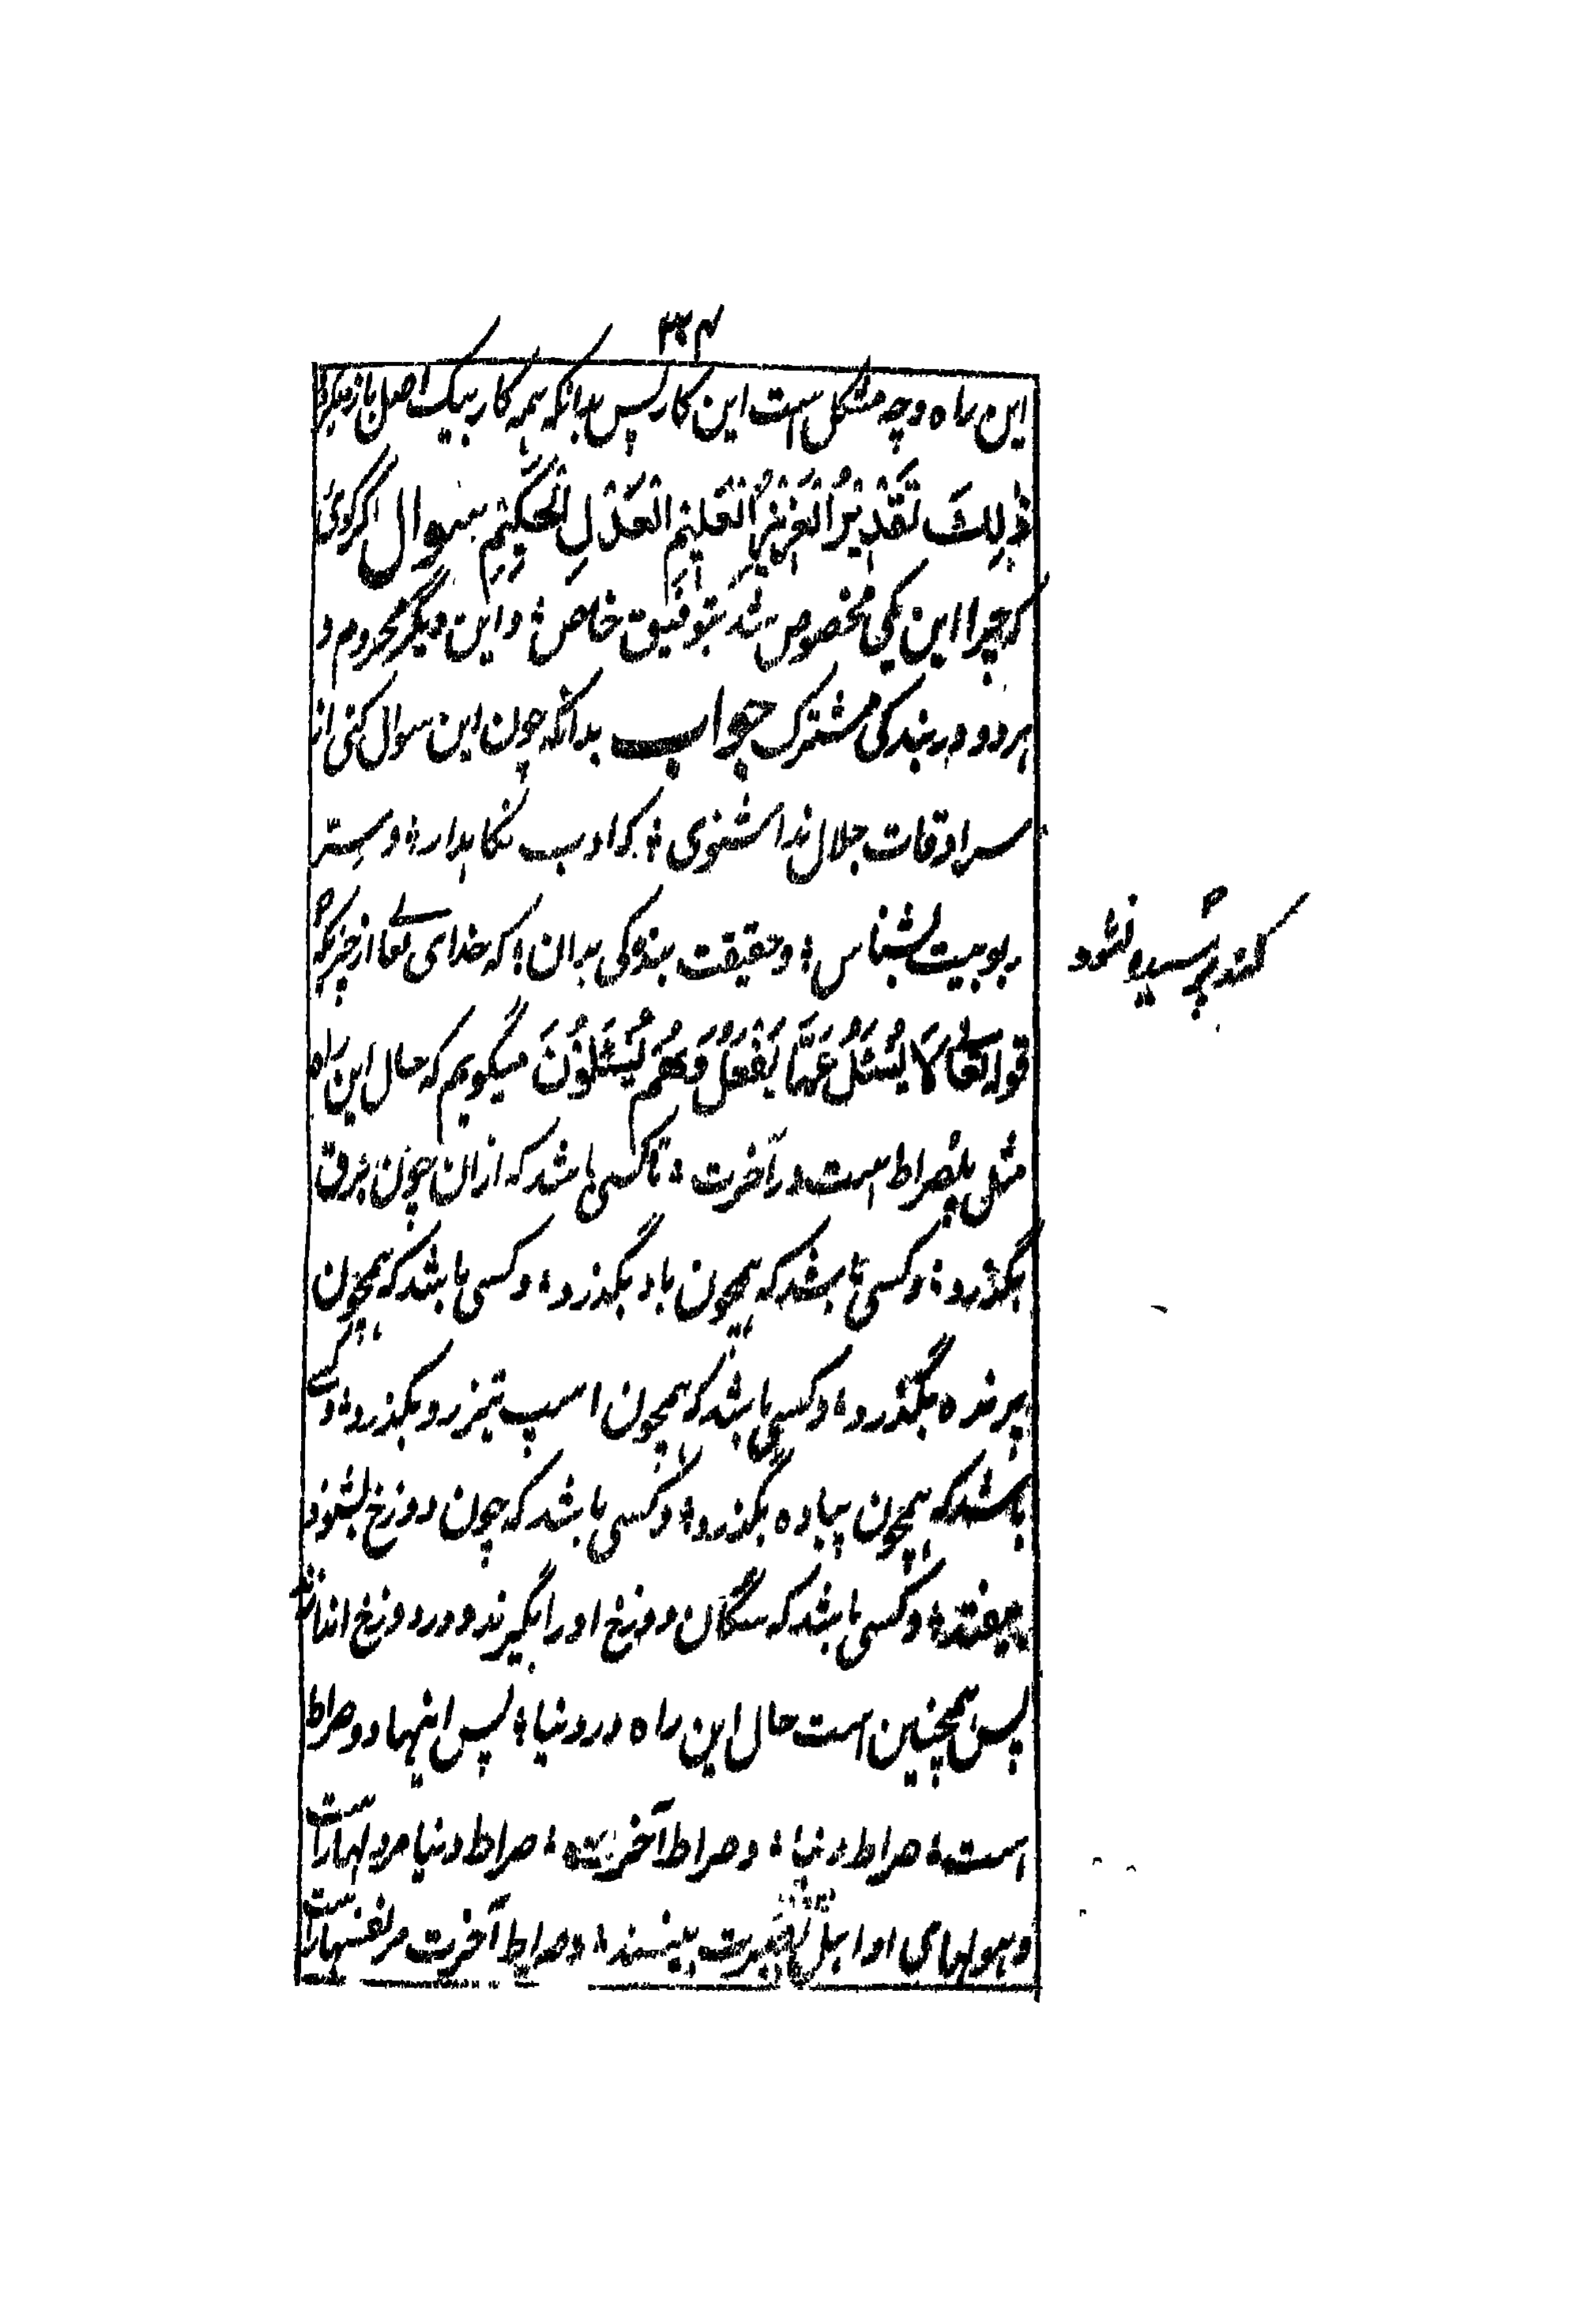 ۳۲۴
این راه وچه مشکل است این کار پس بدانکه همه کار بیک اصل باز میگردد
ذٰلِكَ تَقْدِیْرُ الْعَزِیْزِ الْعَلِیْمِ الْعَدْلِ الْحَکِیْمِ سوال اگر گوئی
کہ چرا این یکی مخصوص شد بتوفیق خاص ؛ و این دیگر محروم و
ہر دو در بندگی مشترک جواب بدانکہ چون این سوال کنی از
سرادقات جلال ندا شنوی ؛ کہ ادب نگاہدار ؛ وسِتر
ربوبیت بشناس ؛ وحقیقت بندگی بدان ؛ کہ خدای تعالے از چیزیکہ
کند پرسیدہ نشود
قولہ تعالے لَا یُسْئَلُ عَمَّا یَفْعَلُ وَهُمْ یُسْئَلُوْنَ میگویم کہ حال این راہ
مثل پلصراط است در آخرت ؛ تا کسی باشد کہ ازان چون برق
بگذرد ؛ وکسی باشد کہ ہمچون باد بگذرد ؛ وکسی باشد کہ ہمچون
پرندہ بگذرد ؛ وکسی باشد کہ ہمچون اسپ تیزرو بگذرد ؛ وکسے
باشد کہ ہمچون پیادہ بگذرد ؛ وکسی باشد کہ چون دوزخ بشنود
بیفتد ؛ وکسی باشد کہ سگان دوزخ اورا بگیرند ودر دوزخ اندازند
پس ہمچنین است حال این راہ در دنیا ؛ پس اینہا دو صراط
است ؛ صراط دنیا ؛ وصراط آخرت ؛ صراط دنیا مردلہاراست
وہولہای او اہل بصیرت بینند ؛ وصراط آخرت مرنفسہاراست